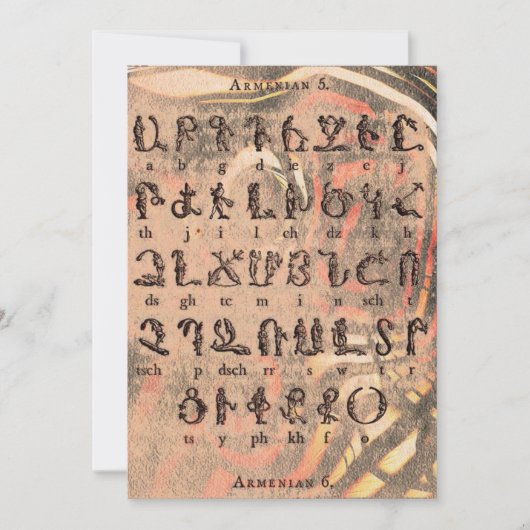 ARMENIAN 5.
Ա Բ Գ Դ Ե Զ Է Ը
a b g d e z e j
Թ Ժ Ի Լ Խ Ծ Կ Հ
th j i l ch dz k h
Ձ Ղ Ճ Մ Յ Ն Շ Ո
ds gh tc m i n scht t
Չ Պ Ջ Ռ Ս Վ Տ Ր
tsch p dsch rr s w t r
Ց Ւ Փ Ք Ֆ Օ
ts y ph kh f o
ARMENIAN 6.